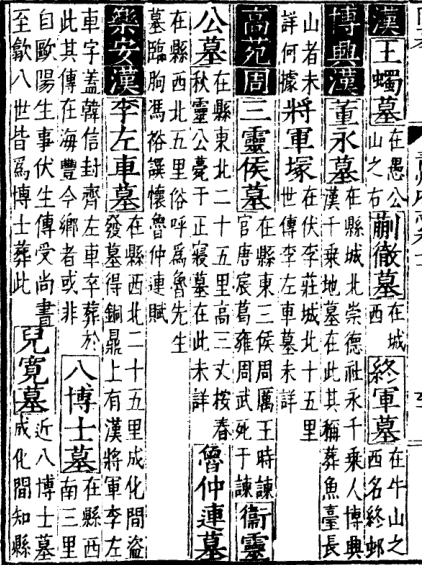 漢王蠋墓在愚公山之右蒯徹墓在城西終軍墓在牛山之西名終邨
博興漢董永墓在縣城北崇德社永千乘人博興漢千乘地墓在此其稱葬魚臺長
山者未詳何據將軍塚在伏李莊城北十五里世傳李左車墓未詳
高苑周三靈侯墓在縣東三侯周厲王時諫官唐宸葛雍周武死于諫衞靈
公墓在縣東北二十五里高三丈按春秋靈公薨于正寢墓在此未詳魯仲連墓
在縣西北五里俗呼爲魯先生墓臨朐馮裕譔懷魯仲連賦
樂安漢李左車墓在縣西北二十五里成化間盜發墓得銅鼎上有漢將軍李左
車字蓋韓信封齊左車卒葬於此其傳在海豐今鄉者或非八博士墓在縣西南三里
自歐陽生事伏生傳受尚書至歙八世皆爲博士葬此兒寬墓近八博士墓成化間知縣